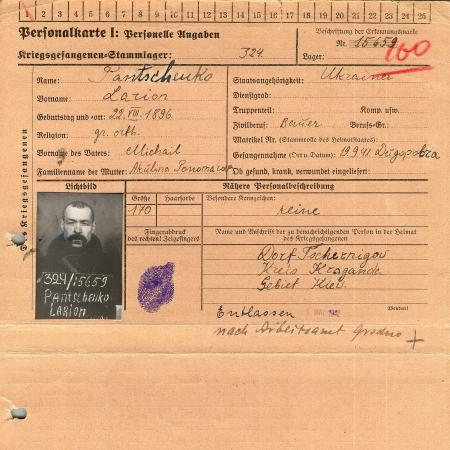 1 2 3 4 5 6 7 8 9 10 11 12 13 14 15 16 17 18 19 20 21 22 23 24 25
Personalkarte I: Personelle Angaben
Beschriftung der Erkennungsmarke
Nr. 15659
160
Kriegsgefangenen-Stammlager: 324
Lager:
Des Kriegsgefangenen
Name: Pantschenko
Staatsangehörigkeit: Ukraina
Vorname: Larion
Dienstgrad:
Geburtstag und -ort: 22.VIII.1896.
Truppenteil: Komp. usw.
Religion: gr. orth.
Zivilberuf: Bauer Berufs-Gr.:
Vorname des Vaters: Michail
Matrikel Nr. (Stammrolle des Heimatstaates):
Gefangennahme (Ort u. Datum): 19.9.41
Familienname der Mutter: Akulina
Ob gesund, krank, verwundet eingeliefert:
Lichtbild
Nähere Personalbeschreibung
Größe
170
Haarfarbe
Besondere Kennzeichen:
keine
Fingerabdruck
des rechten! Zeigefingers
Name und Anschrift der zu benachrichtigenden Person in der Heimat
des Kriegsgefangenen
Dorf Tschernigow
Kreis
Gebiet Kiew.
324/15659
Pantschenko
Larion
Wenden!
Entlassen
nach Arbeitsamt Grodno